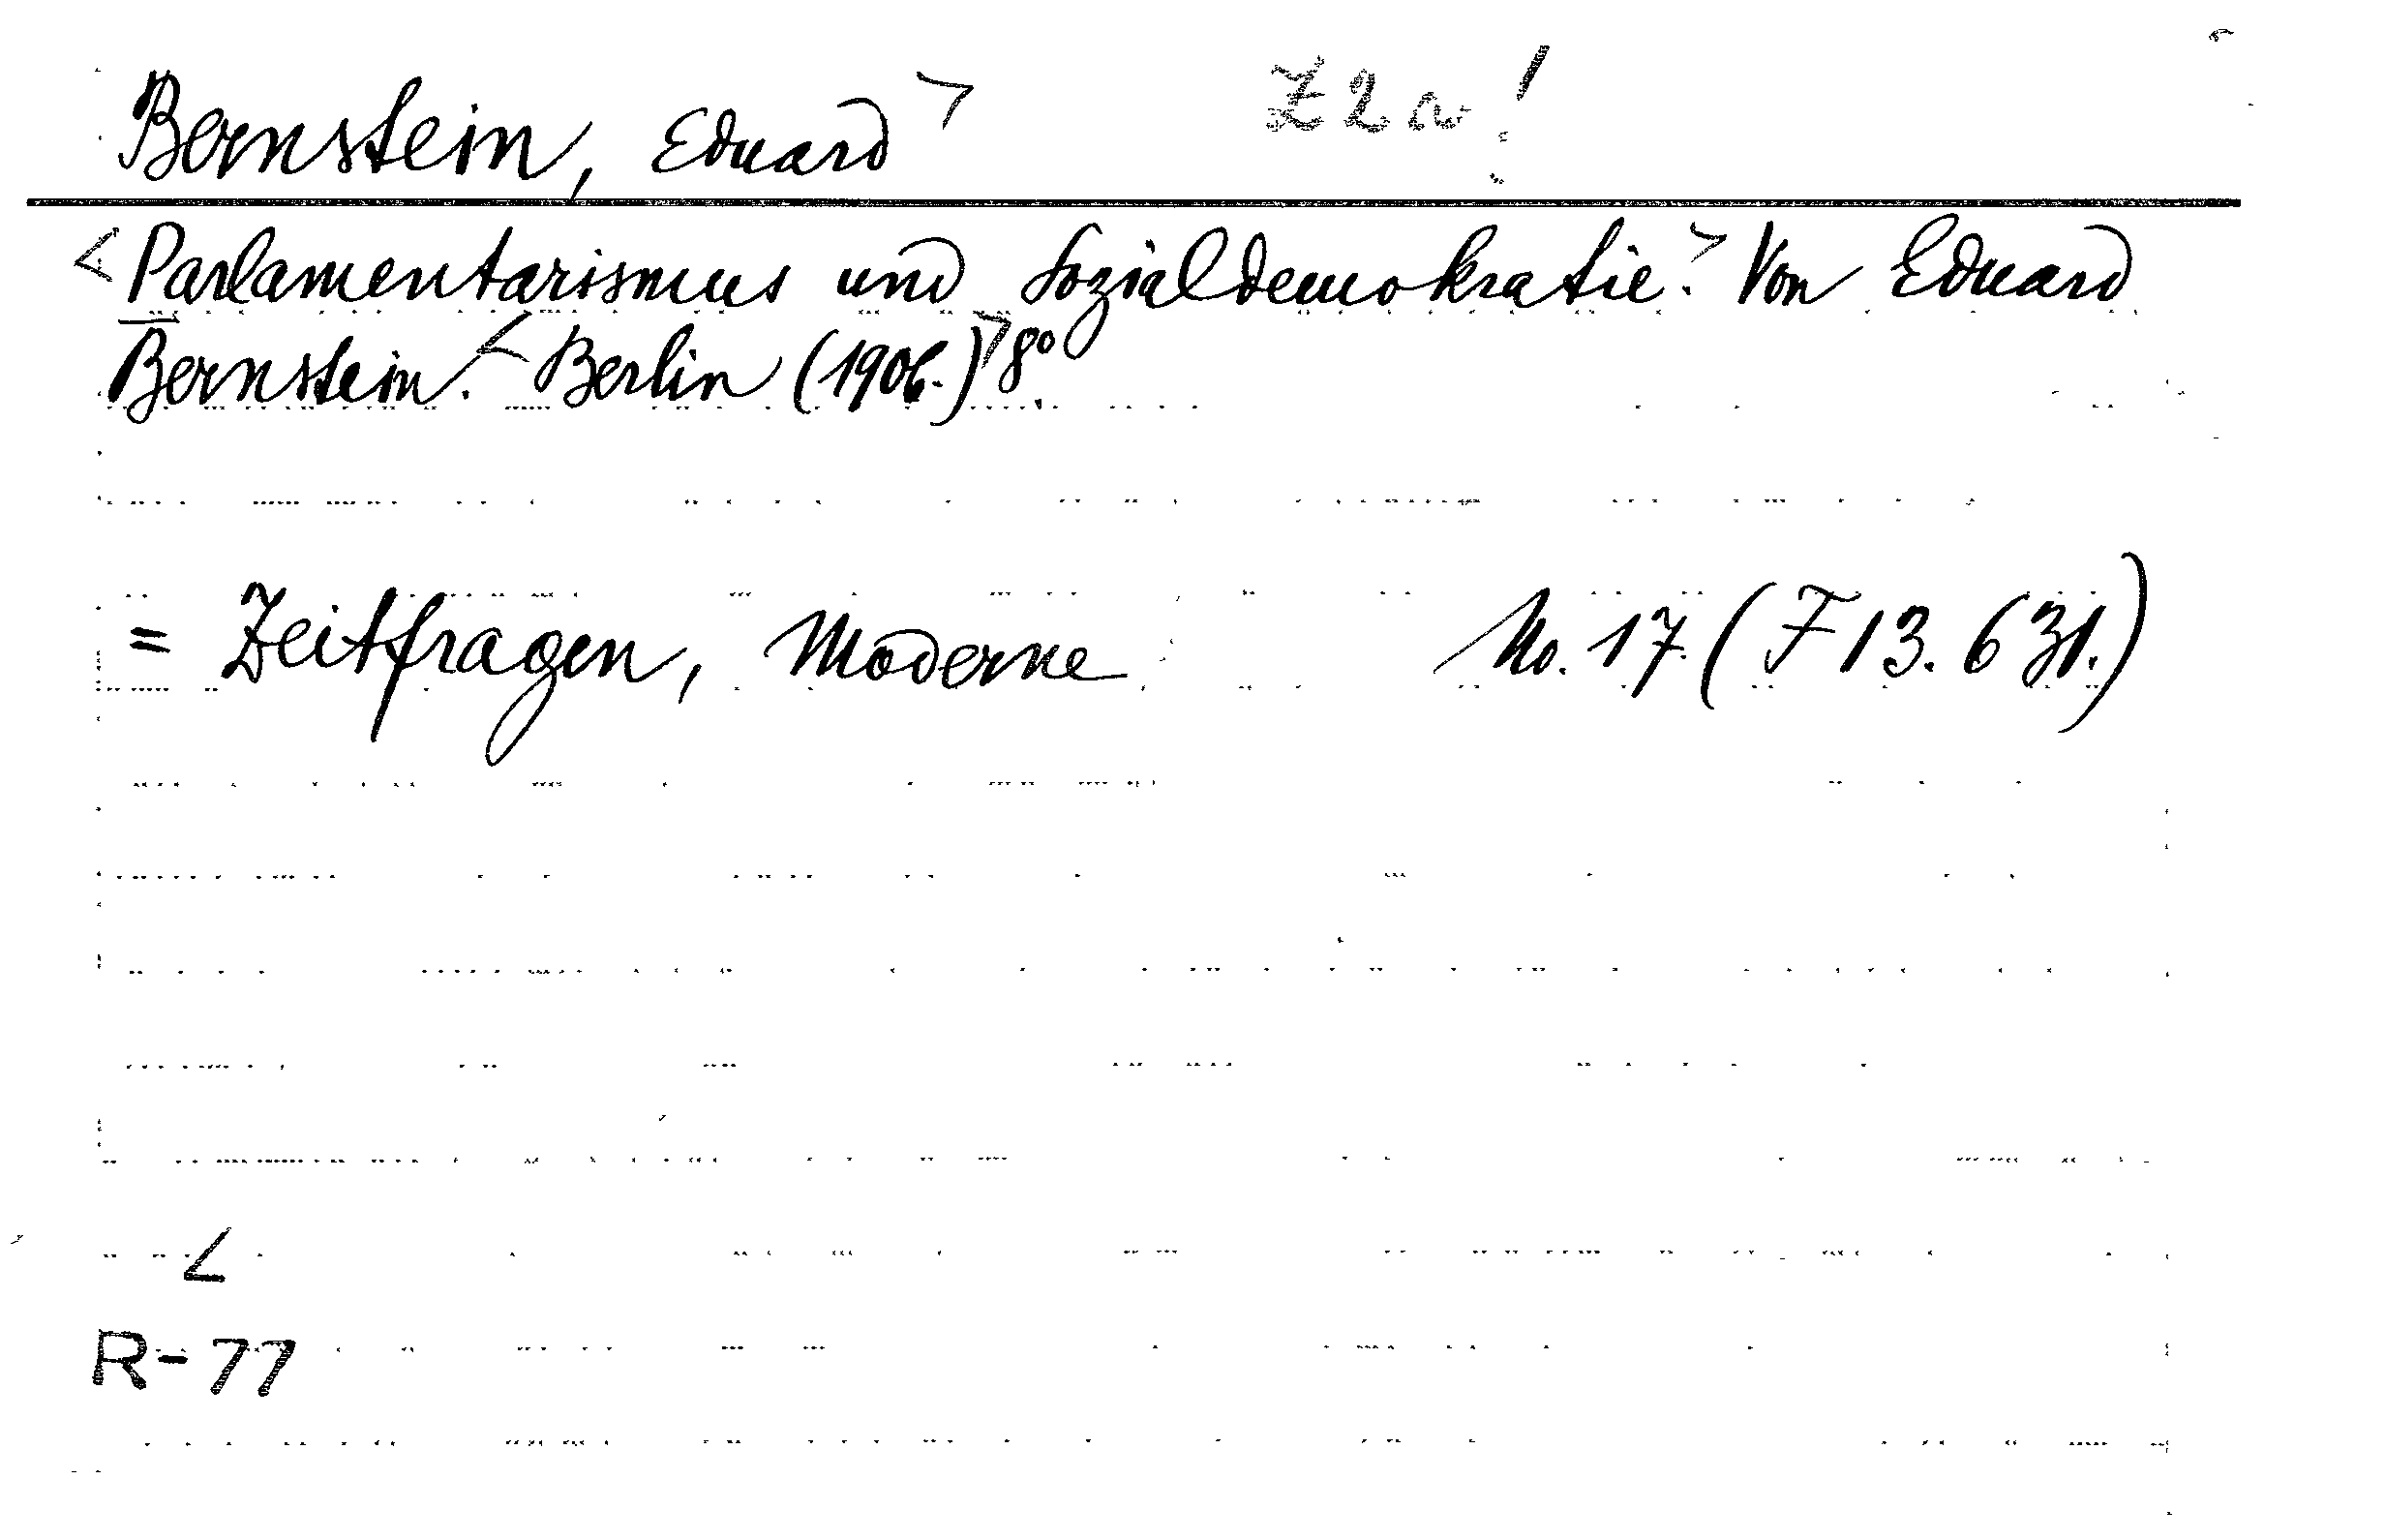 Bernstein, Eduard> Z2a!
<Parlamentarismus und Sozialdemokratie.> Von Eduard
Bernstein.< Berlin (1906.)> 8°.
= Zeitfragen, Moderne No. 17. (F 13.631.)
<
R-77